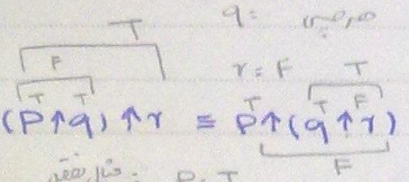 T q:
F r = F T
T T T T F
(p↑q) ↑r ≡ p↑(q↑r)
F
P: T